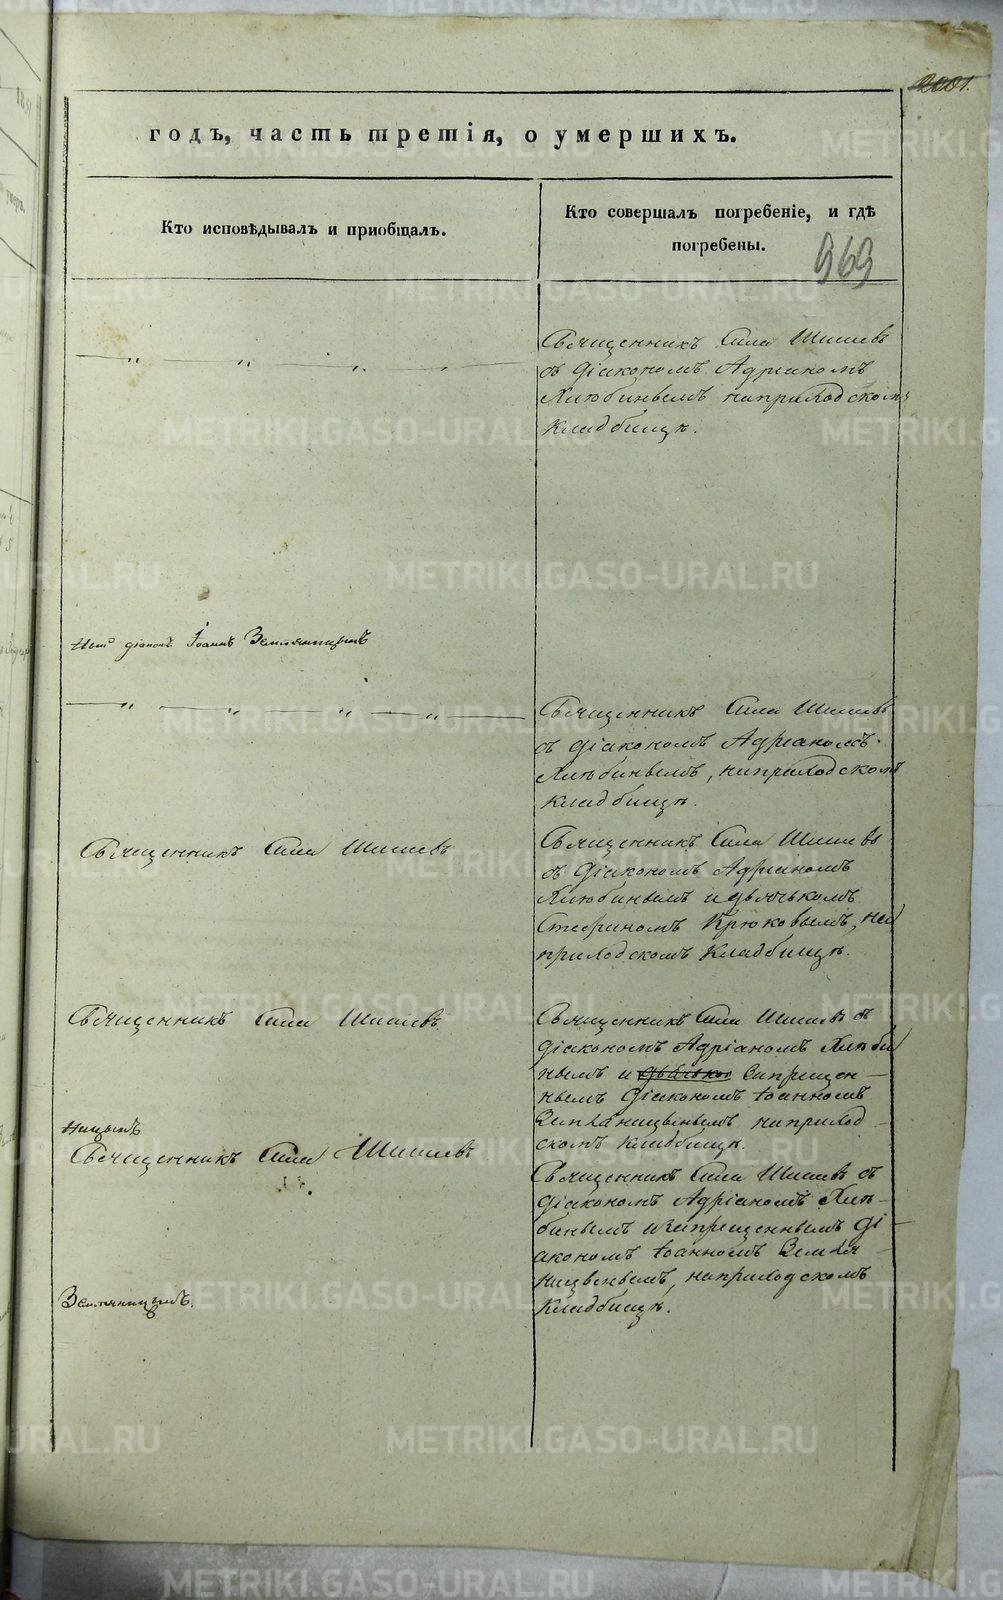 2001.
годъ, часть третія, о умершихъ.
Кто исповѣдывалъ и пріобщалъ.
Кто совершалъ погребеніе, и гдѣ
погребены.
969
Священникъ Сила Шишевъ
съ діакономъ Адріаномъ
Хлюбинымъ наприходскомъ
кладбищѣ.
діаконъ Іоаннъ
Священникъ Сила Шишевъ
съ діакономъ Адріаномъ
Хлѣбинымъ, наприходскомъ
кладбищѣ.
Священникъ Сила Шишевъ
Священникъ Сила Шишевъ
съ діакономъ Адріаномъ
Хлюбинымъ и дьячькомъ
Стефаномъ Крюковымъ, на
приходскомъ кладбищѣ.
Священникъ Сила Шишевъ
Священникъ Сила Шишевъ съ
діакономъ Адріаномъ Хлѣби
нымъ и запрещен-
нымъ діакономъ Іоанномъ
наприход
скомъ кладбищѣ.
Священникъ Сила Шишевъ
Священникъ Сила Шишевъ съ
діакономъ Адріаномъ Хлѣ-
бинымъ изапрещеннымъ ді-
акономъ Іоанномъ Земля
наприходскомъ
кладбищѣ.
METRIKI.GASO-URAL.RU